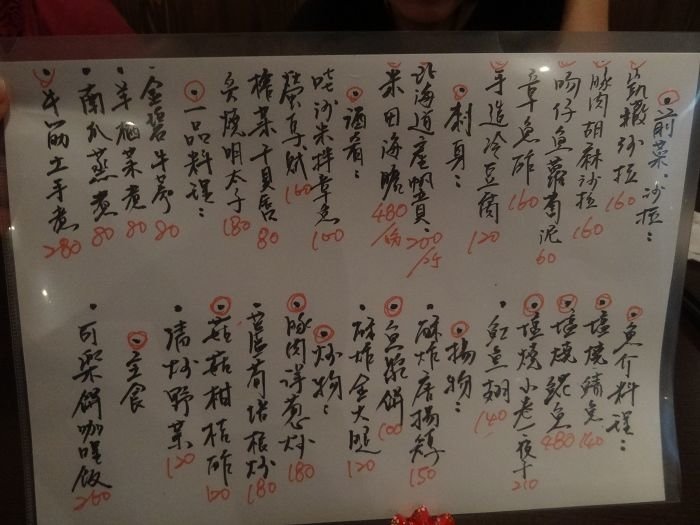 前菜、沙拉：
凱撒沙拉 160
豚肉胡麻沙拉 160
吻仔魚蘿蔔泥 60
章魚酢 160
手造冷豆腐 120
刺身：
北海道產帆貝： 200/2只
米田海膽 480/份
酒肴：
哇沙米拌章魚 100
螢烏賊 160
榨菜干貝唇 80
炙燒明太子 180
一品料理：
金碧牛蒡 80
羊栖菜煮 80
南瓜蒸煮 80
牛筋土手煮 280
魚介料理：
塩燒鯖魚 140
塩燒 魚 480
塩燒小卷一夜干 210
魟魚翅 140
揚物：
酥炸唐揚雞 150
魚漿餅 100
酥炸全大腿 120
炒物：
豚肉洋蔥炒 180
蘆筍培根炒 180
菇菇柑桔酢 120
清炒野菜 120
主食
可樂餅咖哩飯 260